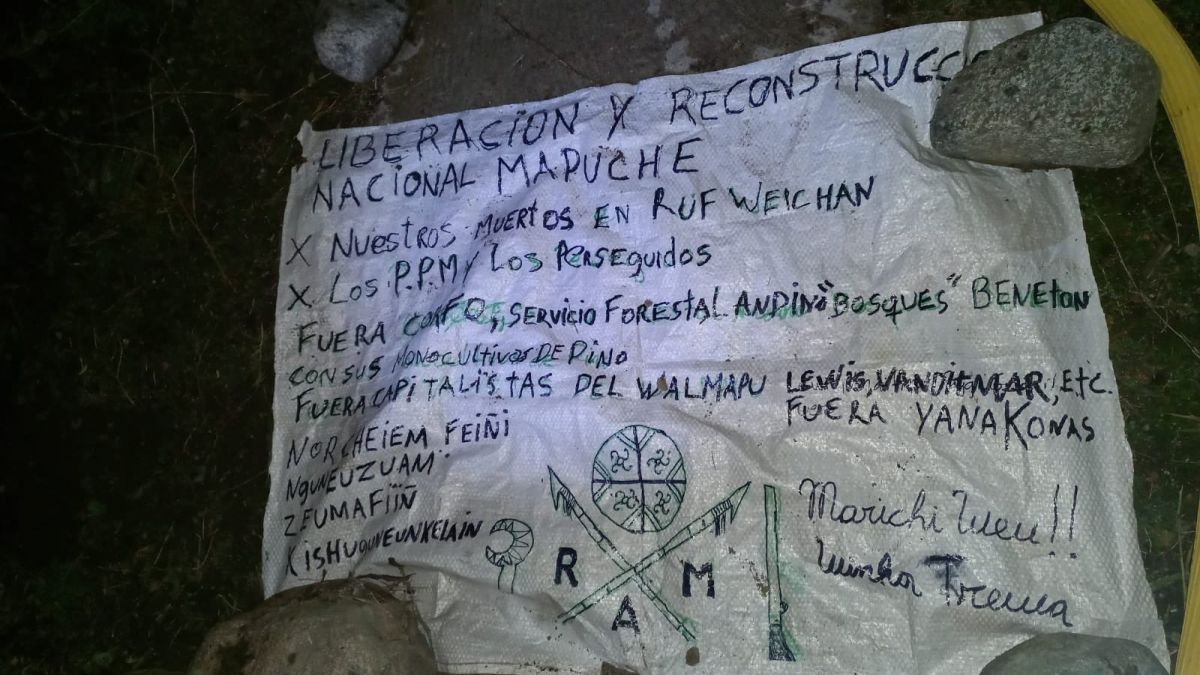 LIBERACION Y RECONSTRUCCIO
NACIONAL MAPUCHE
X NUESTROS MUERTOS EN RUF WEICHAN
X LOS P.P.M Y LOS PERSEGUIDOS
FUERA CORFO, SERVICIO FORESTAL ANDINO "BOSQUES" BENETON
CON SUS MONOCULTIVOS DE PINO
FUERA CAPITALISTAS DEL WALMAPU LEWIS, VANDITMAR, ETC.
FUERA YANAKONAS
NORCHEIEM FEIÑI
NGUNEUZUAM
ZEUMAFIIÑ
KISHUGUNEUNKELAIN
R M
A
Marichi Weu!!
Winka Trewa